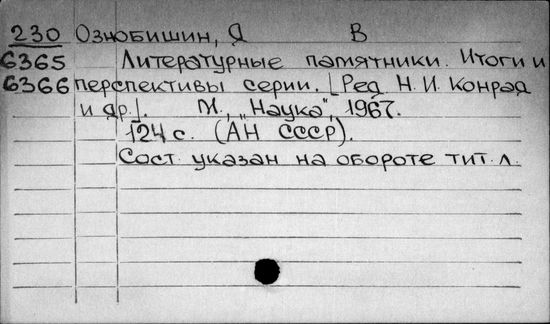 230 Ознобишин, Я В
6365 Литературные памятники. Итоги и
6366 перспективы серии. [Ред. Н. И. Конрад
и др.]. М., "Наука", 1967.
124 с. (АН СССР).
Сост. указан на обороте тит. л.